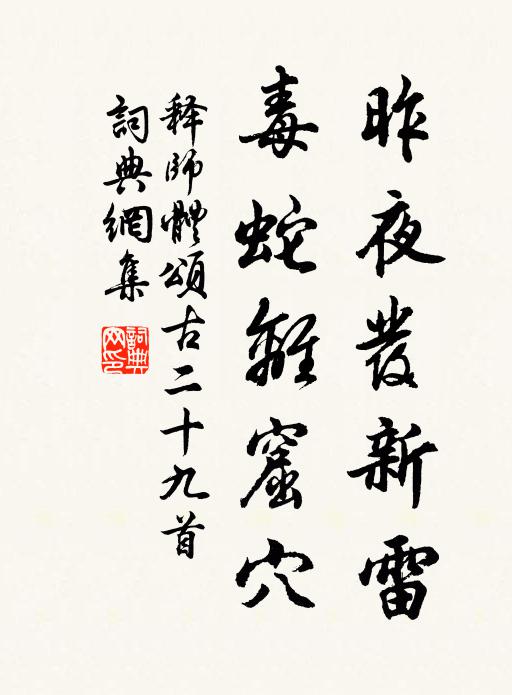 昨夜發新雷
毒蛇離窟穴
释師體頌古二十九首
詞典網集
詞典網印